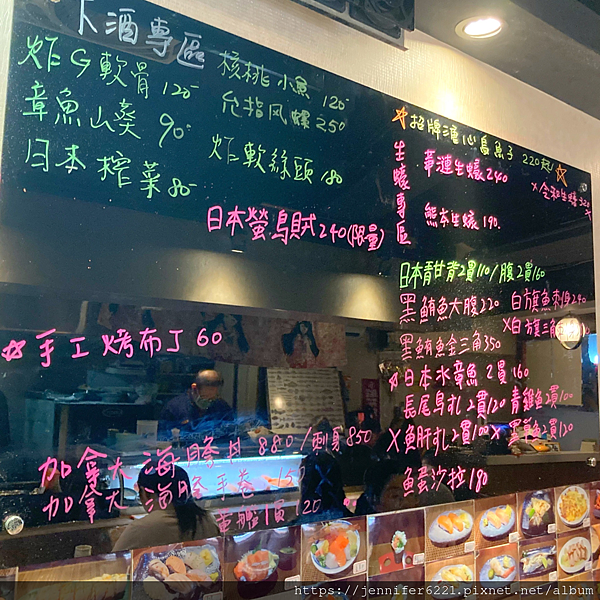 下酒專區
炸G軟骨 120-
章魚山羹 90-
日本榨菜 80-
核桃小魚 120-
允指风螺 250
炸軟絲頭 180
日本螢烏賊240(限量)
手工烤布丁 60
加拿大海膽丼 880/刺身850
加拿大海膽手卷 150
軍艦1貫120
招牌溏心烏魚子 220起
生蠔專區
x 金和生蠔 320
熊本生蠔 190.
日本青甘背2貫110/腹2貫160
黑鮪魚大腹220
白方旗魚刺身240
黑鮪魚金三角350
x白旗三角
日本水章魚 2貫160
x魚肝扎2貫100
魚蛋沙拉180
https://jennifer6221.pixnet.net/album